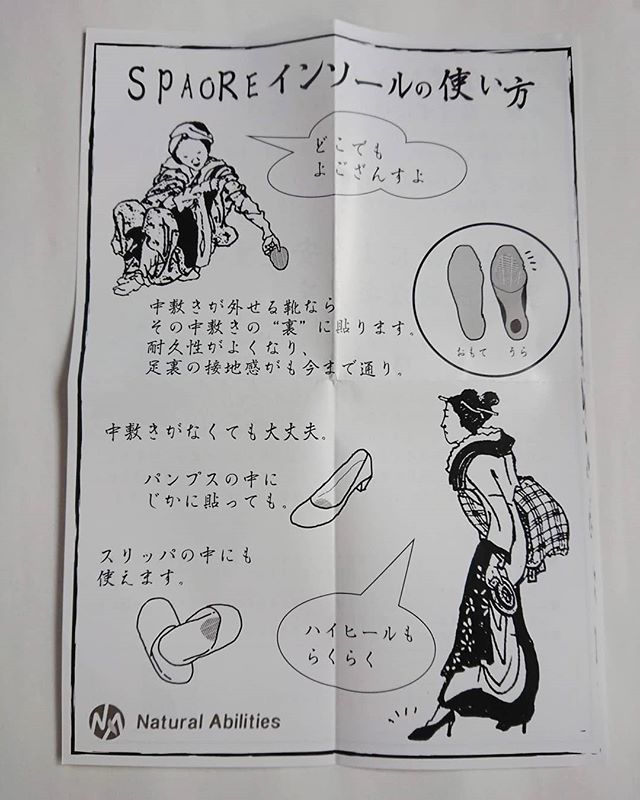 SPAOREインソールの使い方
どこでも
よござんすよ
おもて うら
中敷きが外せる靴なら
その中敷きの“裏”に貼ります。
耐久性がよくなり、
足裏の接地感がも今まで通り。
中敷きがなくても大丈夫。
パンプスの中に
じかに貼っても。
スリッパの中にも
使えます。
ハイヒールも
らくらく
NA Natural Abilities